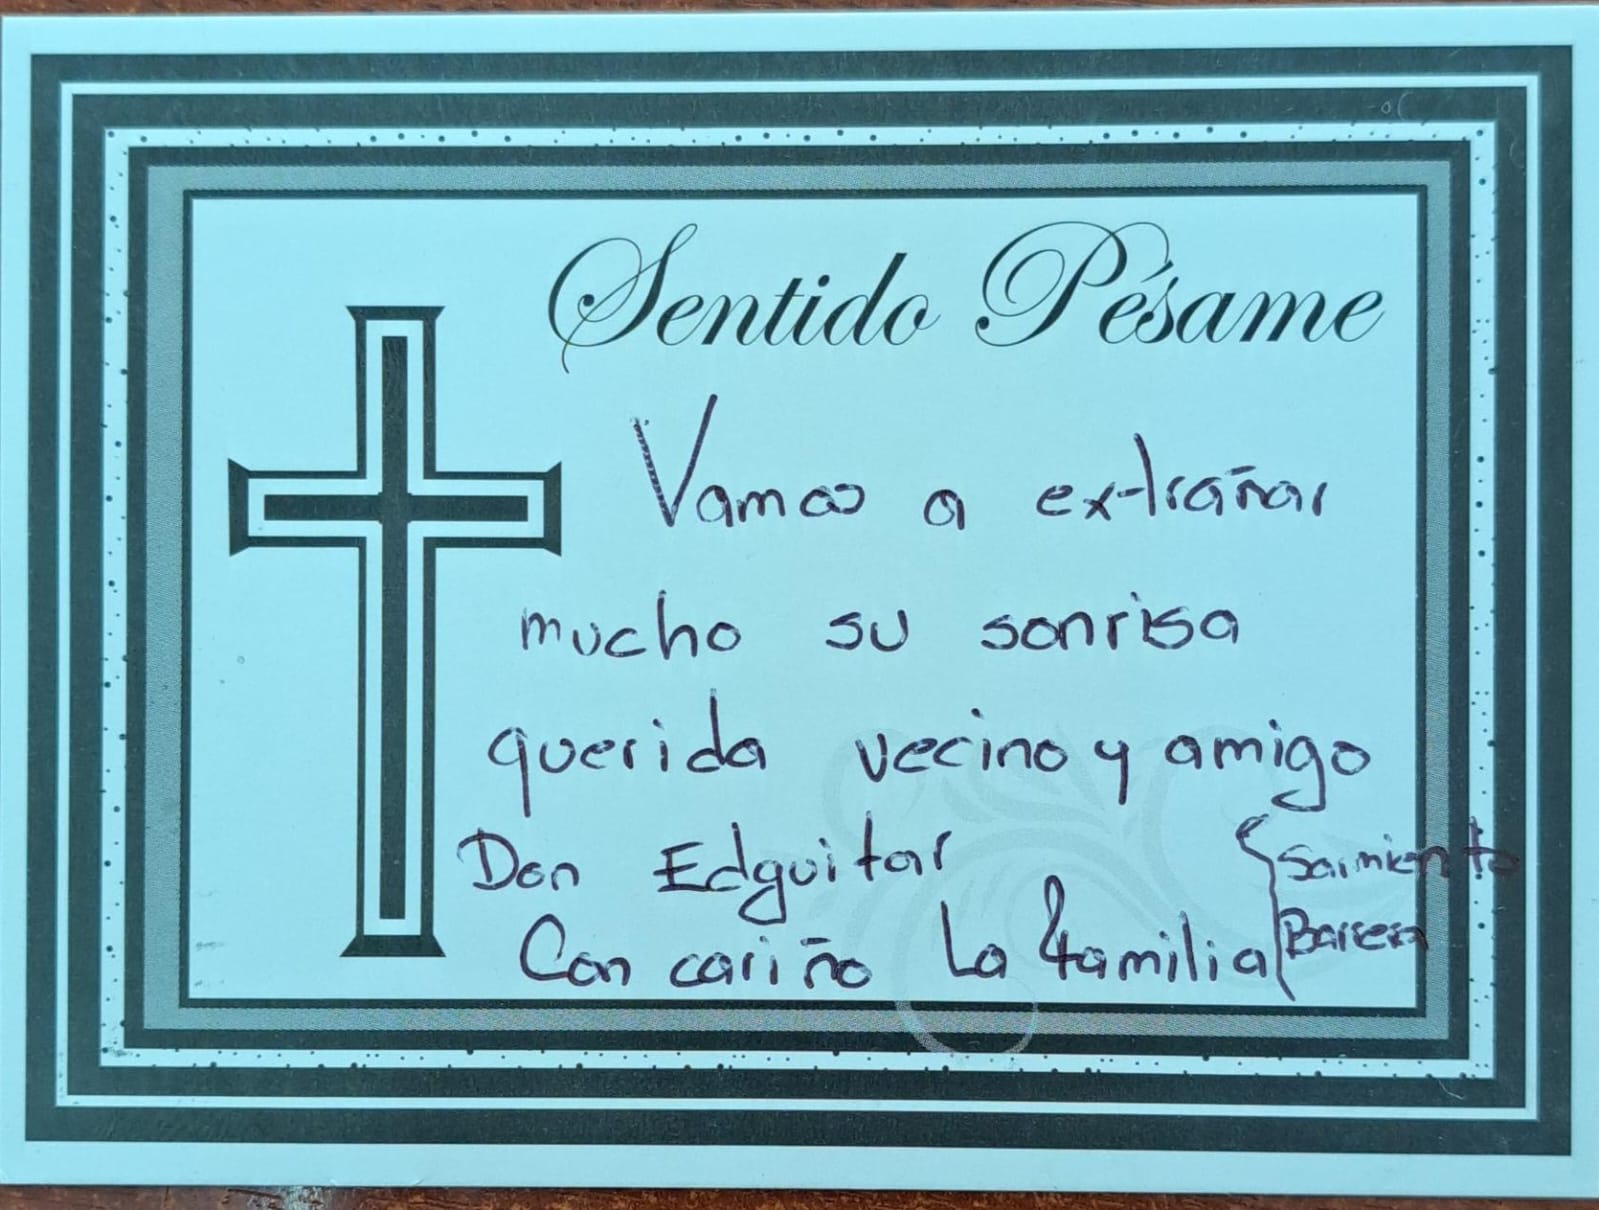 Sentido Pésame
Vamos a extrañar
mucho su sonrisa
querida vecino y amigo
Don Edguitar
Con cariño La familia { Sarmiento
Barrera